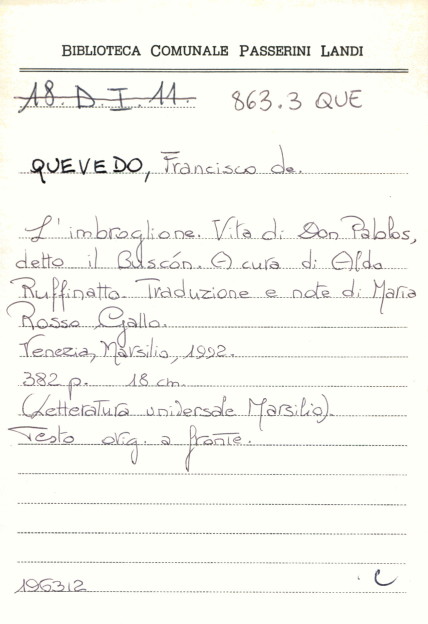 BIBLIOTECA COMUNALE PASSERINI LANDI
18. D I. 11. 863.3 QUE
QUEVEDO, Francisco de.
L'imbroglione. Vita di Don Pablos,
detto il Buscón. A cura di Aldo
Ruffinatto. Traduzione e note di Maria
Rosso Gallo.
Venezia, Marsilio, 1992.
382 p. 18 cm.
(Letteratura universale Marsilio).
Testo orig. a fronte.
196312 C